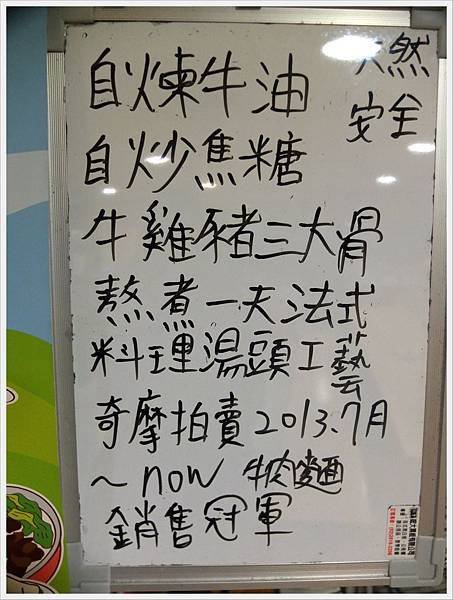 自煉牛油
自炒焦糖
天然
安全
牛雞豬三大骨
熬煮一天法式
料理湯頭工藝
奇摩拍賣2013.7月
~now 牛肉麵
銷售冠軍